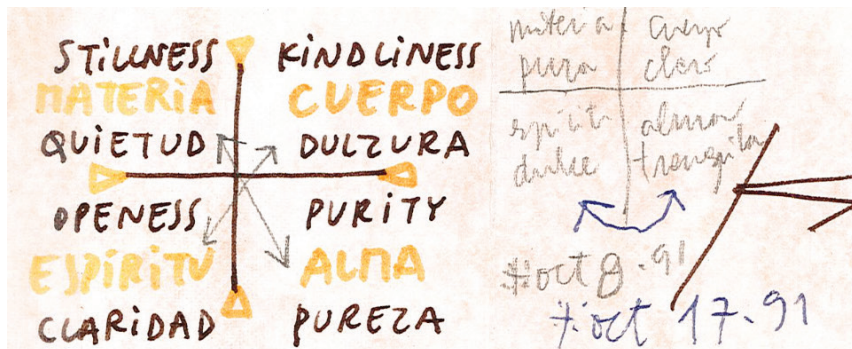 STILLNESS
MATERIA
QUIETUD
KINDLINESS
CUERPO
DULZURA
OPENESS
ESPÍRITU
CLARIDAD
PURITY
ALMA
PUREZA
materia
pura
cuerpo
claro
espíritu
dulce
alma
tranquila
oct 8.91
oct 17.91